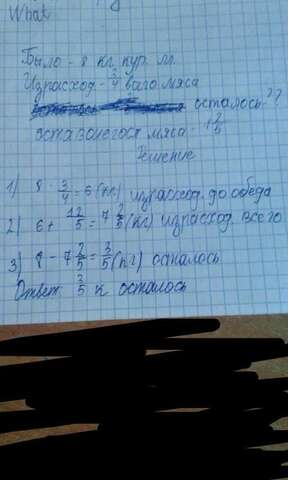 What
Было - 8 кг кур. м.
Израсход - 3/4 всего мяса
осталось - ??
оставшегося мяса - 1 2/5
Решение
1) 8 · 3/4 = 6 (кг) израсход. до обеда
2) 6 + 1 2/5 = 7 2/5 (кг) израсход. всего
3) 8 - 7 2/5 = 3/5 (кг) осталось
Ответ 3/5 к осталось